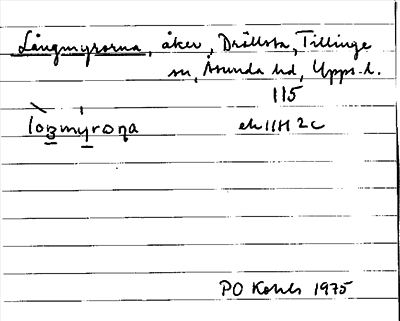 Långmyrorna, åker, Drällsta, Tillinge
sn, Åsunda hd, Upps. l.
115
ek 11H 2c
PO Kohls 1975